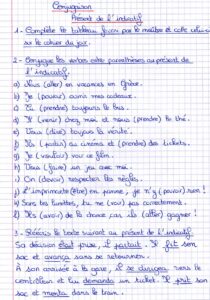 Conjugaison
Présent de l'indicatif
1 - Complète le tableau fourni par le maître et colle celui-ci
sur le cahier du jour.
2 - Conjugue les verbes entre parenthèses au présent de
l'indicatif.
a) Vous (aller) en vacances en Grèce.
b) Je (pouvoir) avoir mes cadeaux.
c) Tu (prendre) toujours le bus.
d) Il (venir) chez moi et nous (prendre) le thé.
e) Vous (dire) toujours la vérité.
f) Ils (partir) au cinéma et (prendre) des tickets.
g) Je (vouloir) voir ce film.
h) Vous (faire) un jeu avec moi.
i) On (devoir) respecter les règles.
j) L'imprimante (être) en panne, je n'y (pouvoir) rien !
k) Sans tes lunettes, tu me (voir) pas correctement.
l) Ils (avoir) de la chance car ils (aller) gagner.
3 - Réécris le texte suivant au présent de l'indicatif.
Sa décision était prise, il partait. Il prit son
sac et avança sans se retourner.
À son arrivée à la gare, il se dirigea vers le
contrôleur et lui demanda un ticket. Il prit son
sac et monta dans le train.